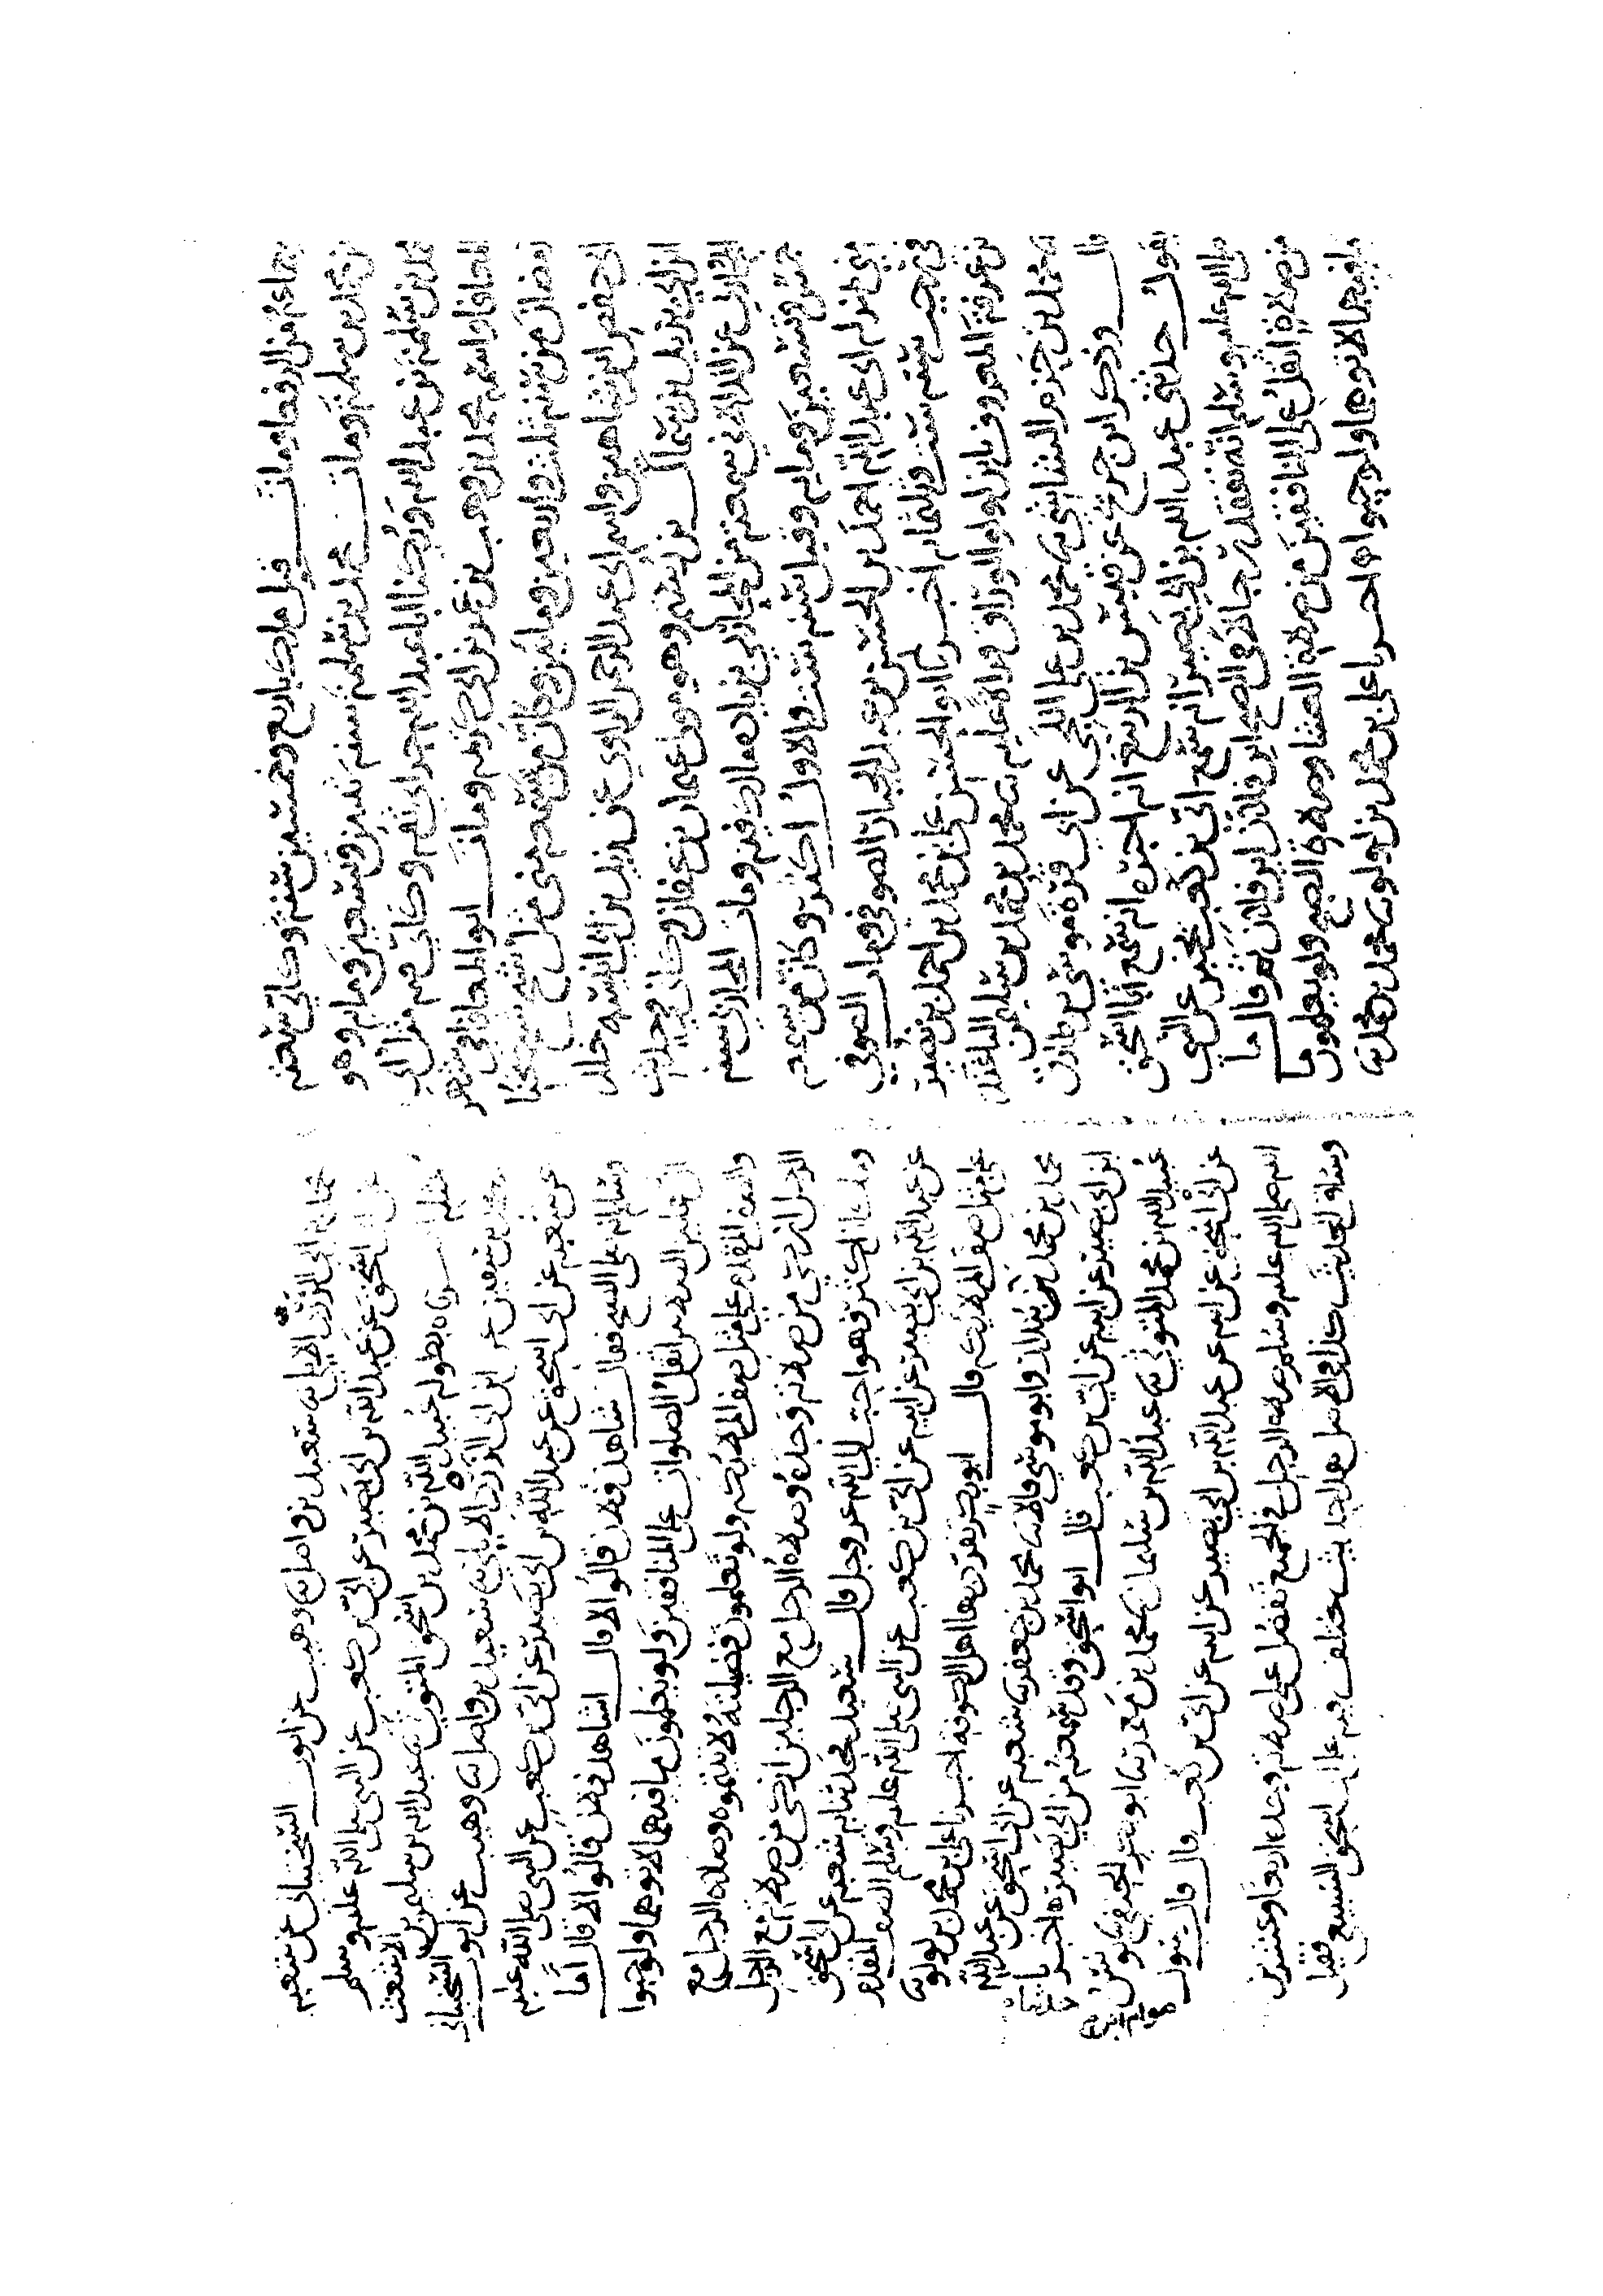 جماعة من ومات قبل وخمسين سنة
محمد بن سلمة ومات محمد بن سلمة سنة وتسعين وماية وهو
محمد بن سلمة بن عبد الله ويكنا ابا عبد الله حراني ثقة وكاني
واسمه محمد بن وهب بن عمر بن ابي كريمة ومات ابو المعافا في شهر
رمضان من سنة ثلث واربعين ومايتين وكان من سمعه مني مثل شيخ شيخنا
ابي حفص ابن شاهين واسم ابي عبد الرحيم الراوي عن زيد بن ابي انيسة خالد
ابن ابي يزيد بن سماك بن رستم وهو مولى عثمان بن عفان وكاني في حديث
المحاربي عن سمعته من المحاربي ومات المحاربي سنة
خمس وتسعين وماية وقيل سنة ست والاول اكثر وكان من سمعه
مني عبد الله احمد بن الحسن بن عبد الجبار الصوفي ومات الصوفي
في رجب سنة ست وثلثماية اخبرنا ابو الحسن علي بن محمد بن احمد بن نصير
بن عرفة المعروف بابن لولو الوراق قراة عليه نا محمد بن محمد بن سليمن الباغندي
نا محمد بن علي عن ابي قرة موسى بن طارق
قال وذكر ابن جريج عن قيس بن الربيع انه اخبره انه سمع ابا اسحق
يقول حدثني عبد الله بن ابي بصير انه سمع ابي بن كعب يخبر عن النبي
صلى الله عليه وسلم انه تفقد رجالا في الصبح اين فلان اين فلان ثم قال ما
من صلاة اثقل على المنافقين من صلاة العشا وصلاة الصبح ولو يعلمون ما
فيهما لاتوهما ولو حبوا اخبرنا علي بن محمد بن لولو نا محمد بن محمد نا
الايلي نا سعيد بن واصل نا وهيب عن ايوب السختياني عن شعبة
عن ابي اسحق عن عبد الله بن ابي بصير عن ابي بن كعب عن النبي صلى الله عليه وسلم
بطوله عبيد الله بن محمد بن اسحق المتوثي نا عبد الله بن سليمن بن الاشعث
الايلي نا سعيد بن واصل نا وهيب عن ايوب السختياني
عن شعبة عن ابي اسحق عن عبد الله بن ابي بصير عن ابي بن كعب عن النبي صلى الله عليه
وسلم انه صلى الصبح فقال شاهد فلان قالوا لا قال اشاهد فلان قالوا لا قال اما
ان هاتين الصلاتين اثقل الصلوات على المنافقين ولو يعلمون ما فيهما لاتوهما ولو حبوا
والصف المقدم على مثل صف الملايكة ولو تعلمون فضيلته لابتدرتموه وصلاة الرجل مع
الرجل ازكى من صلاته وحده وصلاة الرجل مع الرجلين ازكى من صلاته مع الرجل
وما كان اكثر فهو احب الى الله عز وجل قال سعيد فحدثنا به شعبة عن ابي اسحق
عن عبد الله بن ابي بصير عن ابيه عن ابي بن كعب عن النبي صلى الله عليه وسلم الصف المقدم
على مثل صف الملايكة قال ابو بكر تفرد بها اهل الكوفة اخبرنا علي بن محمد بن لولو نا
محمد بن محمد نا بندار وابو موسى قالا نا محمد بن جعفر نا شعبة عن ابي اسحق عن عبد الله
ابن ابي بصير عن ابيه عن ابي بن كعب قال ابو اسحق وقد سمعته من ابي بصير اخبرنا
عبيد الله بن محمد المتوثي نا عبد الله بن سليمان نا محمد بن معمر نا ابو بكر الحنفي نا يونس
عن ابي اسحق عن ابيه عن عبد الله بن ابي بصير عن ابيه عن ابي بن كعب قال قال رسول
الله صلى الله عليه وسلم صلاة الرجل في الجميع تفضل على صلاته وحده اربعا وعشرين
وساق الحديث كذا في الاصل هذا حديث مختلف فيه على ابي اسحق السبيعي فقيل